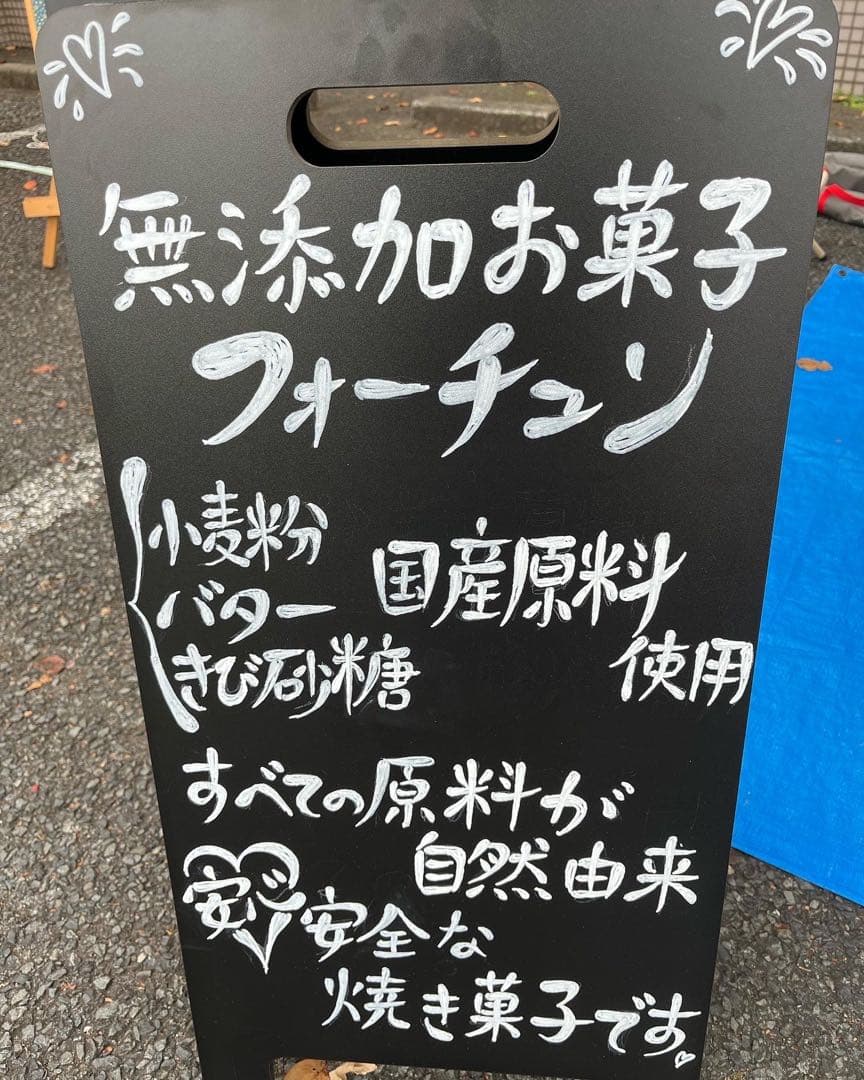 無添加お菓子
フォーチュン
小麦粉
バター
きび砂糖
国産原料
使用
すべての原料が
自然由来
安心安全な
焼き菓子です。